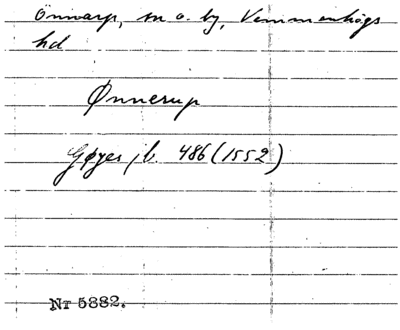 Önnarp, sn o. by, Vemmenhögs
hd
Ønnerup
Gøyes jb. 486 (1552)
Nr 5882.